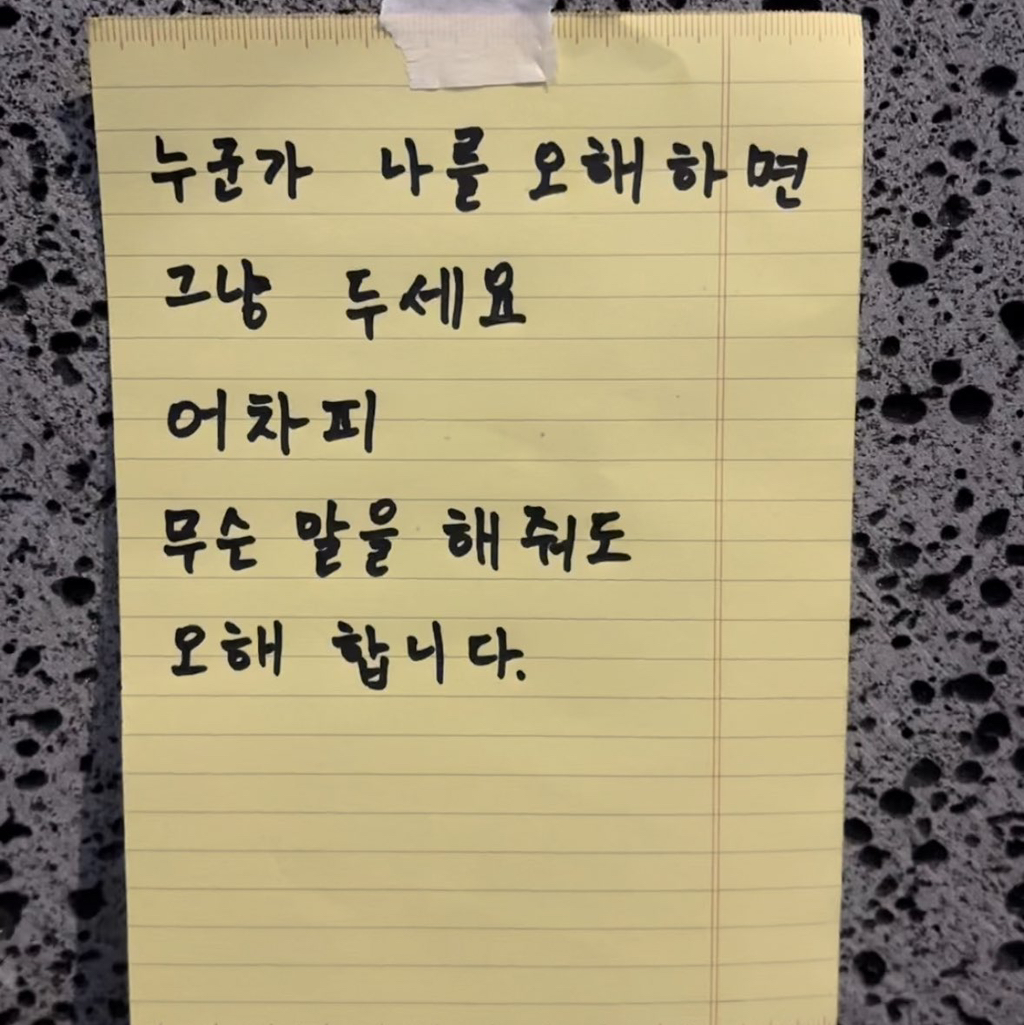 누군가 나를 오해하면
그냥 두세요
어차피
무슨 말을 해줘도
오해 합니다.